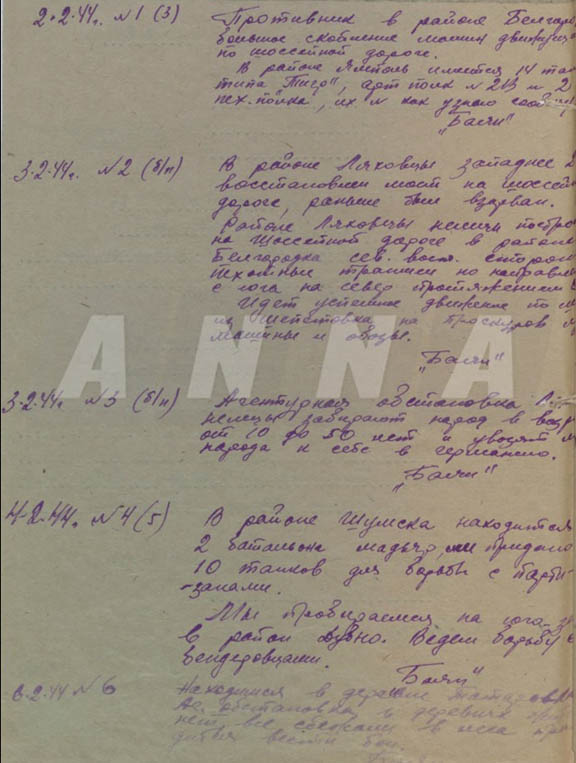 2.2.44г. №1 (3) Противник в районе Белгоро
большое скопление машин движущихс
по шоссейной дороге.
В районе Ямполь имеется 14 тан
типа "Тигр", арт полк № 213 и 2
пех. полка, их № как узнаю сообщ
"Баги"
3.2.44г. №2 (б/н) В районе Ляховцы западнее
восстановлен мост на шоссейн
дороге, раньше был взорван.
Районе Ляховцы немцы построи
на шоссейной дороге в районе
Белгородка сев. вост. сторон
с юга на север протяжением
Идет усиленное движение по
из Шепетовка на Проскуров
машины и обозы.
"Баги"
ANNA
3.2.44г. №3 (б/н) Агентурная обстановка
немцы забирают народ в возр
от 10 до 50 лет и увозят
народа к себе в германию.
"Баги"
4.2.44г. №4 (5) В районе Шумска находится
2 батальона мадьяр им придано
10 танков для борьбы с парти-
-занами.
Мы пробираемся на юга
в район Дубно. Ведем борьбу с
бендеровцами.
"Баги"
6.2.44 №6 Находимся в деревне
обстановка в деревнях
нет, все сбежали в леса